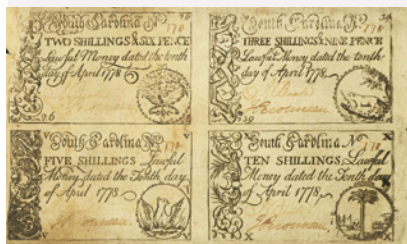 South Carolina No 170
TWO SHILLINGS & SIX PENCE
Lawful Money dated the tenth
day of April 1778
26
South Carolina No 170
THREE SHILLINGS & NINE PENCE
Lawful Money dated the tenth
day of April 1778
South Carolina No 170
FIVE SHILLINGS Lawful
Money dated the Tenth day
of April 1778
V
South Carolina No 170
TEN SHILLINGS, Lawful
Money dated the Tenth day
of April 1778
X
X